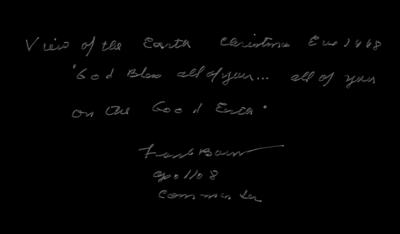 View of the Earth Christmas Eve 1968
"God Bless all of you... all of you
on the Good Earth"
Frank Borman
Apollo 8
Commander